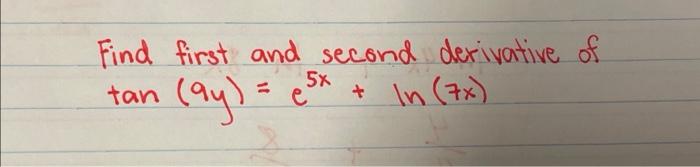 Find first and second derivative of
tan (9y) = e^5x + ln (7x)